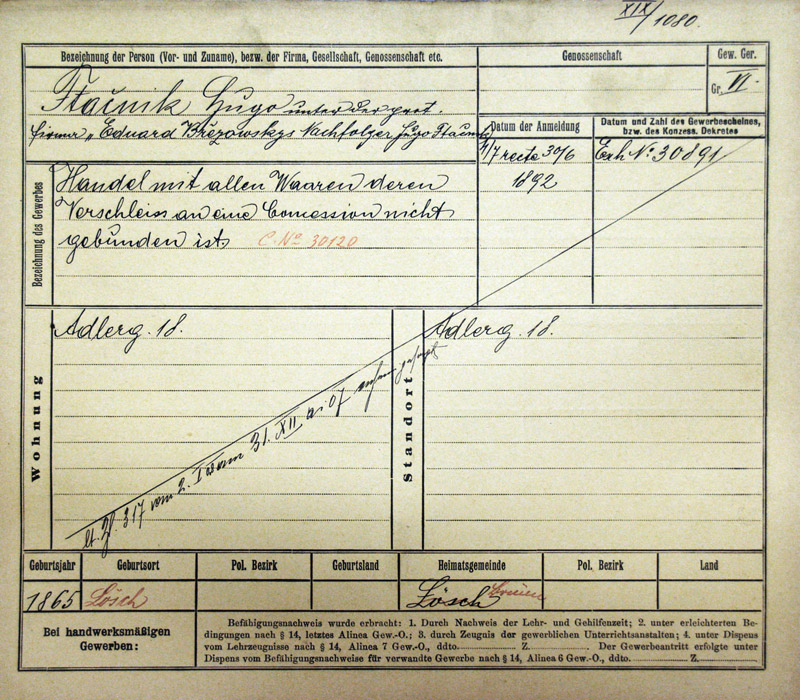 XIX/1080.
Bezeichnung der Person (Vor- und Zuname), bezw. der Firma, Gesellschaft, Genossenschaft etc.
Genossenschaft
Gew. Ger.
Gr. VI.
Hugo unter der prot.
Firma „Eduard Březowskys Nachfolger Hugo
Datum der Anmeldung
Datum und Zahl des Gewerbescheines, bzw. des Konzess. Dekretes
1/7 recte 30/6
1892
Exh. No. 30891
Bezeichnung des Gewerbes
Handel mit allen Waaren deren
Verschleiss an eine Concession nicht
gebunden ist. C. No 30120
Wohnung
Adlerg. 18.
Standort
Adlerg. 18.
lt. Zl. 317 vom 2. I vom 31. XII
Geburtsjahr
Geburtsort
Pol. Bezirk
Geburtsland
Heimatsgemeinde
Pol. Bezirk
Land
1865
Lösch
Lösch
Bei handwerksmäßigen
Gewerben:
Befähigungsnachweis wurde erbracht: 1. Durch Nachweis der Lehr- und Gehilfenzeit; 2. unter erleichterten Be-
dingungen nach § 14, letztes Alinea Gew.-O.; 3. durch Zeugnis der gewerblichen Unterrichtsanstalten; 4. unter Dispens
vom Lehrzeugnisse nach § 14, Alinea 7 Gew.-O., ddto. Z. Der Gewerbeantritt erfolgte unter
Dispens vom Befähigungsnachweise für verwandte Gewerbe nach § 14, Alinea 6 Gew.-O., ddto. Z.